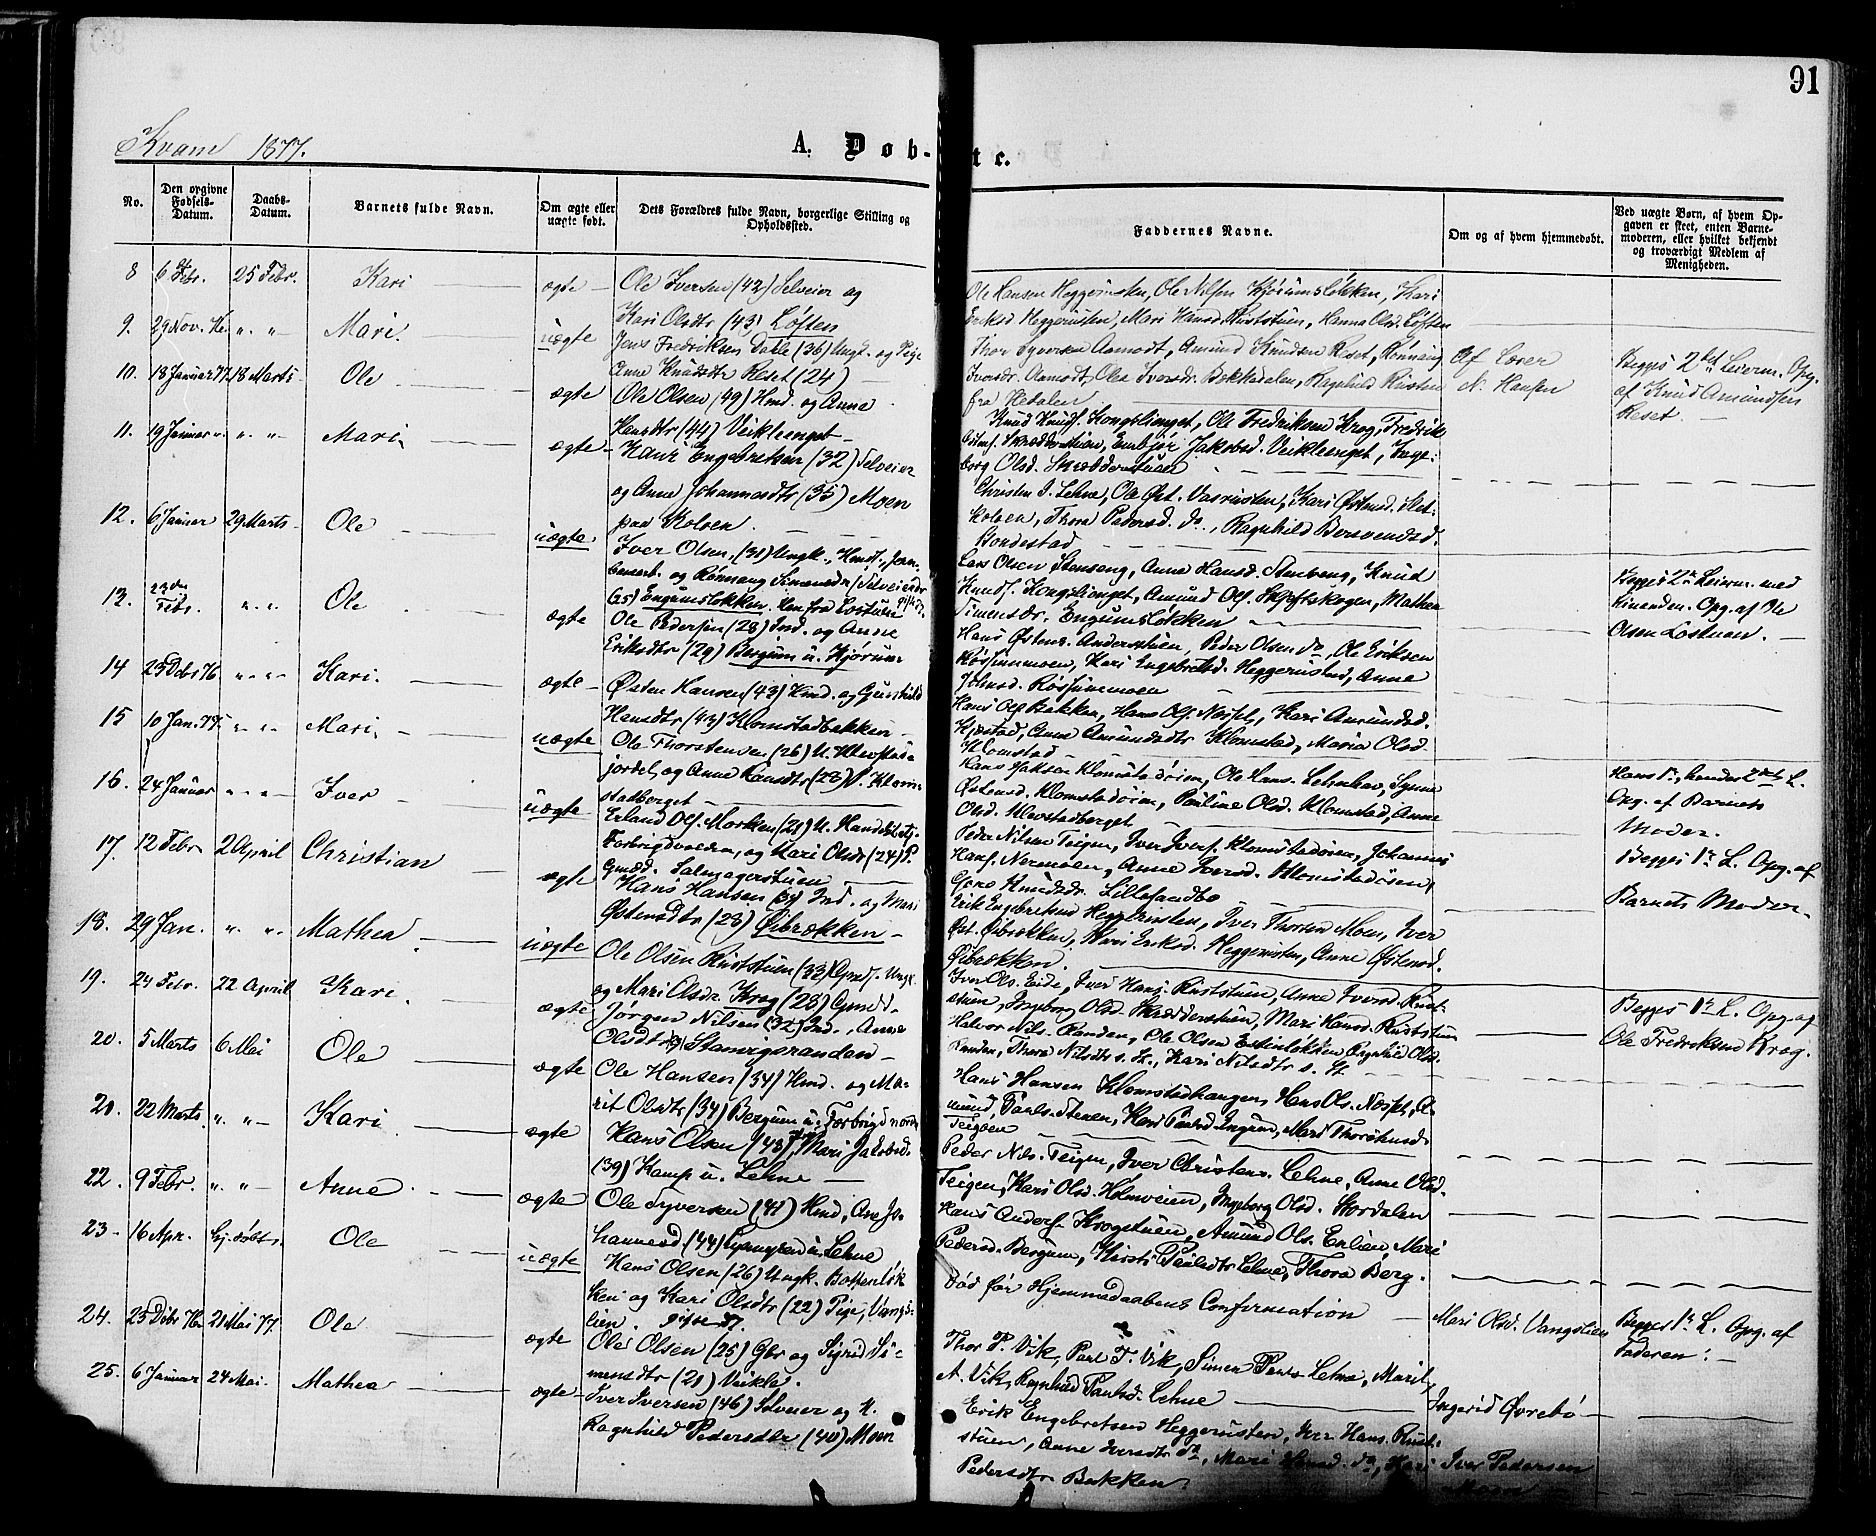 91
Kvam 1877.
A. Døb-te.
No.
Den opgivne Fødsels-Datum.
Daabs-Datum.
Barnets fulde Navn.
Om ægte eller uægte født.
Dets Forældres fulde Navn, borgerlige Stilling og Opholdssted.
Faddernes Navne.
Om og af hvem hjemmedøbt.
Ved uægte Børn, af hvem Opgaven er skeet, enten Barnemoderen, eller hvilket bekjendt og troværdigt Medlem af Menigheden.
8 6 Febr. 25 Febr. Kari ægte
Ole Iversen (42) Selveier og
Kari Olsdtr (43) Løften
Ole Hansen Heggerusten, Ole Nilsen Kjørumsløkken, Kari
Eriksd Heggerusten, Mari Hansd. Ruststuen, Hanna Olsd. Løften
9. 29 Nov. „ „ Mari. uægte
Jens Fredriksen Dahle (36) Ungk. og Pige
Anne Knudsdtr Reset (24)
Thor Syversen Aamodt, Amund Knudsen Reset, Rønnaug
Iversdr. Aamodt, Olea Iversdr. Bakkedalen, Ragnhild Rusten
fra Hedalen
Af Lærer
N. Hansen
Begges 2det Leierm. Opg.
af Knud Amundsen
Reset.
10. 18 Januar 77 18 Marts Ole ægte
Ole Olsen (49) Hmd. og Anne
Hansdtr (44) Veiklesenget
Knud Knuds. Kongsliengen, Ole Fredriksen Krog, Fredrik
Skrædderstuen, Embjør Jakobsd. Veiklesenget, Inge-
borg Olsd. Skrædderstuen
11. 19 Januar „ „ „ Mari ægte
Hans Engebretsen (32) Selveier
og Anne Johannesdtr (35) Moen
paa Koloen.
Christen I. Lehne, Ole Øst. Vasrusten, Kari Østensd. Slet-
kolven, Thora Pedersd. do., Ragnhild Bersvendsd.
Bondestad
12. 6 Januar 29 Marts Ole uægte
Iver Olsen, (31) Ungk.,
og Rønnaug Simensdr (Selveierdr
(25) Engumsløkken. Han fra Lostuen
Lars Olsen Stenseng, Anne Hansd. Stenseng, Knud
Knuds. Kongsliengen, Amund Ols. Skjeftskogen, Mathea
Simensdr. Engumsløkken
Begges 2det Leierm. med
hinanden. Opg. af Ole
Olsen Lostuen.
13. 22de Febr. „ „ Ole ægte
Ole Pedersen (28) Ind. og Anne
Eriksdtr (29) Bergum u. Kjørum
Hans Østens. Anderstuen, Peder Olsen do, Ole Eriksen
Røssummoen, Kari Engebretsd. Heggerusted, Anne
Johnsd. Røssummoen
14 25 Debr 76 „ „ Kari. ægte
Østen Hansen (43) Hmd. og Gunhild
Hansdtr (43) Klomstadbakken
Hans Ols Bakken, Hans Ols. Næsset, Kari Amundsd.
Kjæstad, Anne Amundsdtr Klomstad, Maria Olsd.
Klomstad
15 10 Jan. 77 „ „ Mari. uægte
Ole Thorstensen (26) U. Klevstad-
jordet, og Anne Hansdtr (28) P. Klevs-
stadberget
Hans Jakobsen Klomstadøien, Ole Hans. Lehnehav, Synne
Østensd. Klomstadøien, Pauline Olsd. Klomstad, Anne
Olsd. Klevstadberget
Hans 1ste, hendes 2det L.
Opg. af Barnets
Moder.
16. 24 Januar „ „ Iver uægte
Erland Ols. Morken (21) U.
Forbrigdvolden, og Kari Olsdr (24) P.
Gmdd. Salmagerstuen
Peder Nilsen Teigen, Iver Ivers. Klomstadøien, Johannes
Hans. Nermoen, Anne Iversd. Klomstadøien,
Knudsdr. Lillesandbo
Begges 1ste L. Opg. af
Barnets Moder.
17. 12 Febr 2 April Christian ægte
Hans Hansen (31) Ind. og Mari
Østensdtr (28) Øibrækken
Erik Engebretsen Heggerusten, Iver Thorsen Moen, Iver
Øst. Øibrækken, Mari Eriksd. Heggerusten, Anne Østensd.
Øibrækken.
18. 29 Jan. „ „ Mathea uægte
Ole Olsen Ruststuen (33) Gmds. Ungk.
og Mari Olsdr. Krog (28) Gmdd.
Iver Ols. Eide, Iver Hans. Ruststuen, Anne Iversd. Rust-
stuen, Ingeborg Olsd. Skrædderstuen, Mari Hansd. Ruststuen
Begges 1ste L. Opg. af
Ole Fredriksen Krog.
19. 24 Febr. 22 April Kari. ægte
Jørgen Nilsen (32) Ind., Anne
Olsdtr Stamvigsranden
Halvor Nils. Randen, Ole Olsen Erlienløkken, Ragnhild Olsd.
Randen, Thora Nilsdtr s. St., Kari Nilsdtr s. St.
20. 5 Marts 6 Mai Ole ægte
Ole Hansen (34) Hmd. og Ma-
rit Olsdtr (34) Bergum u. Forbrigd nordre
Hans Hansen Klomstadhaugen, Hans Ols. Næsset, A-
mund Pauls. Stenen, Kari Paulsd Engum, Mari Thorsteinsd.
Teigøen
21. 22 Marts „ „ Kari ægte
Hans Olsen (43) Mari Jakobsd.
(39) Kamp u. Lehne
Peder Nils. Teigen, Iver Christens. Lehne, Anne Olsd.
Teigen, Kari Olsd. Holmveien, Ingeborg Olsd. Stordalen
22. 9 Febr. „ „ Anne ægte
Ole Syversen (41) Hmd, Ane Jo-
hannesd (44) u. Lehne
Hans Anders. Krogstuen, Amund Ols. Erlien, Mari
Pedersd. Bergum, Kirsti Paulsdtr Lehne, Thora Berg.
23. 16 Apr. Hj. døbt Ole uægte
Hans Olsen (26) Ungk. Bottenløk-
ken og Kari Olsdtr (22) Pige, Vangs-
lien.
Død før Hjemmedaabens Confirmation
Mari Olsd. Vangslien
Begges 1ste L. Opg. af
Faderen.
24. 25 Debr 76 21 Mai 77. Ole ægte
Ole Olsen (25) Gbr og Sigrid Si-
mensdtr (21) Veikle.
Thor P. Vik, Paul T. Vik, Simen Pauls. Lehne, Marit
A. Vik, Ragnhild Paulsd. Lehne
Ingerid Øvrebø
25. 6 Januar 24 Mai. Mathea ægte
Iver Iversen (46) Selveier og H.
Ragnhild Pedersdtr (40) Moen
Erik Engebretsen Heggerusten, Iver Hans. Rust-
stuen, Anne Iversdtr do, Mari Hansd. do, Kari
Pedersdtr Bakken.
Iver Pedersen
Moen